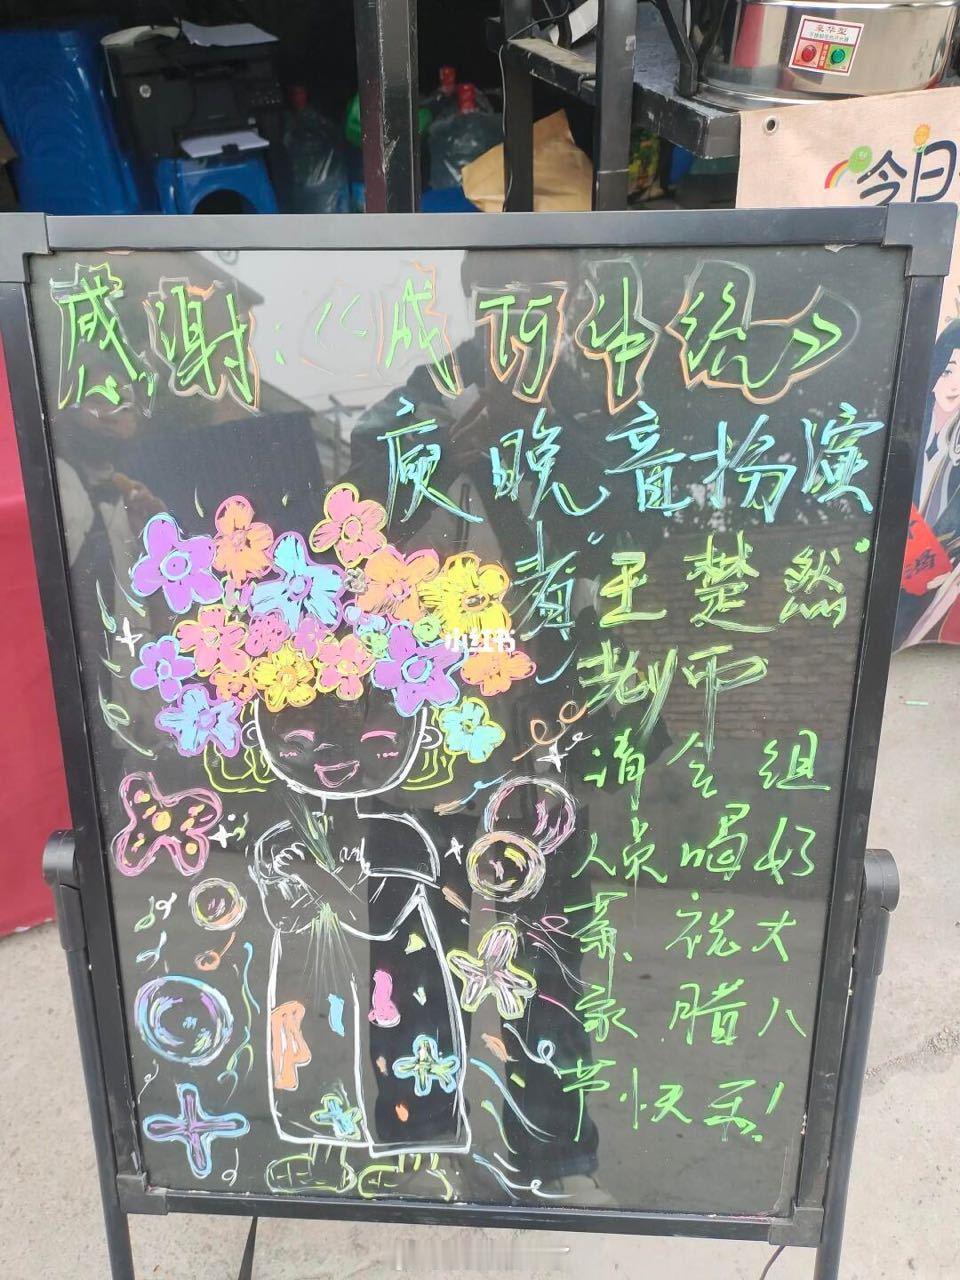 豪华型
今日
感谢:《成何体统》
庾晚音扮演
者"王楚然"
老师
小红书
请全组
人员喝奶
茶,祝大
家腊八
节快乐!